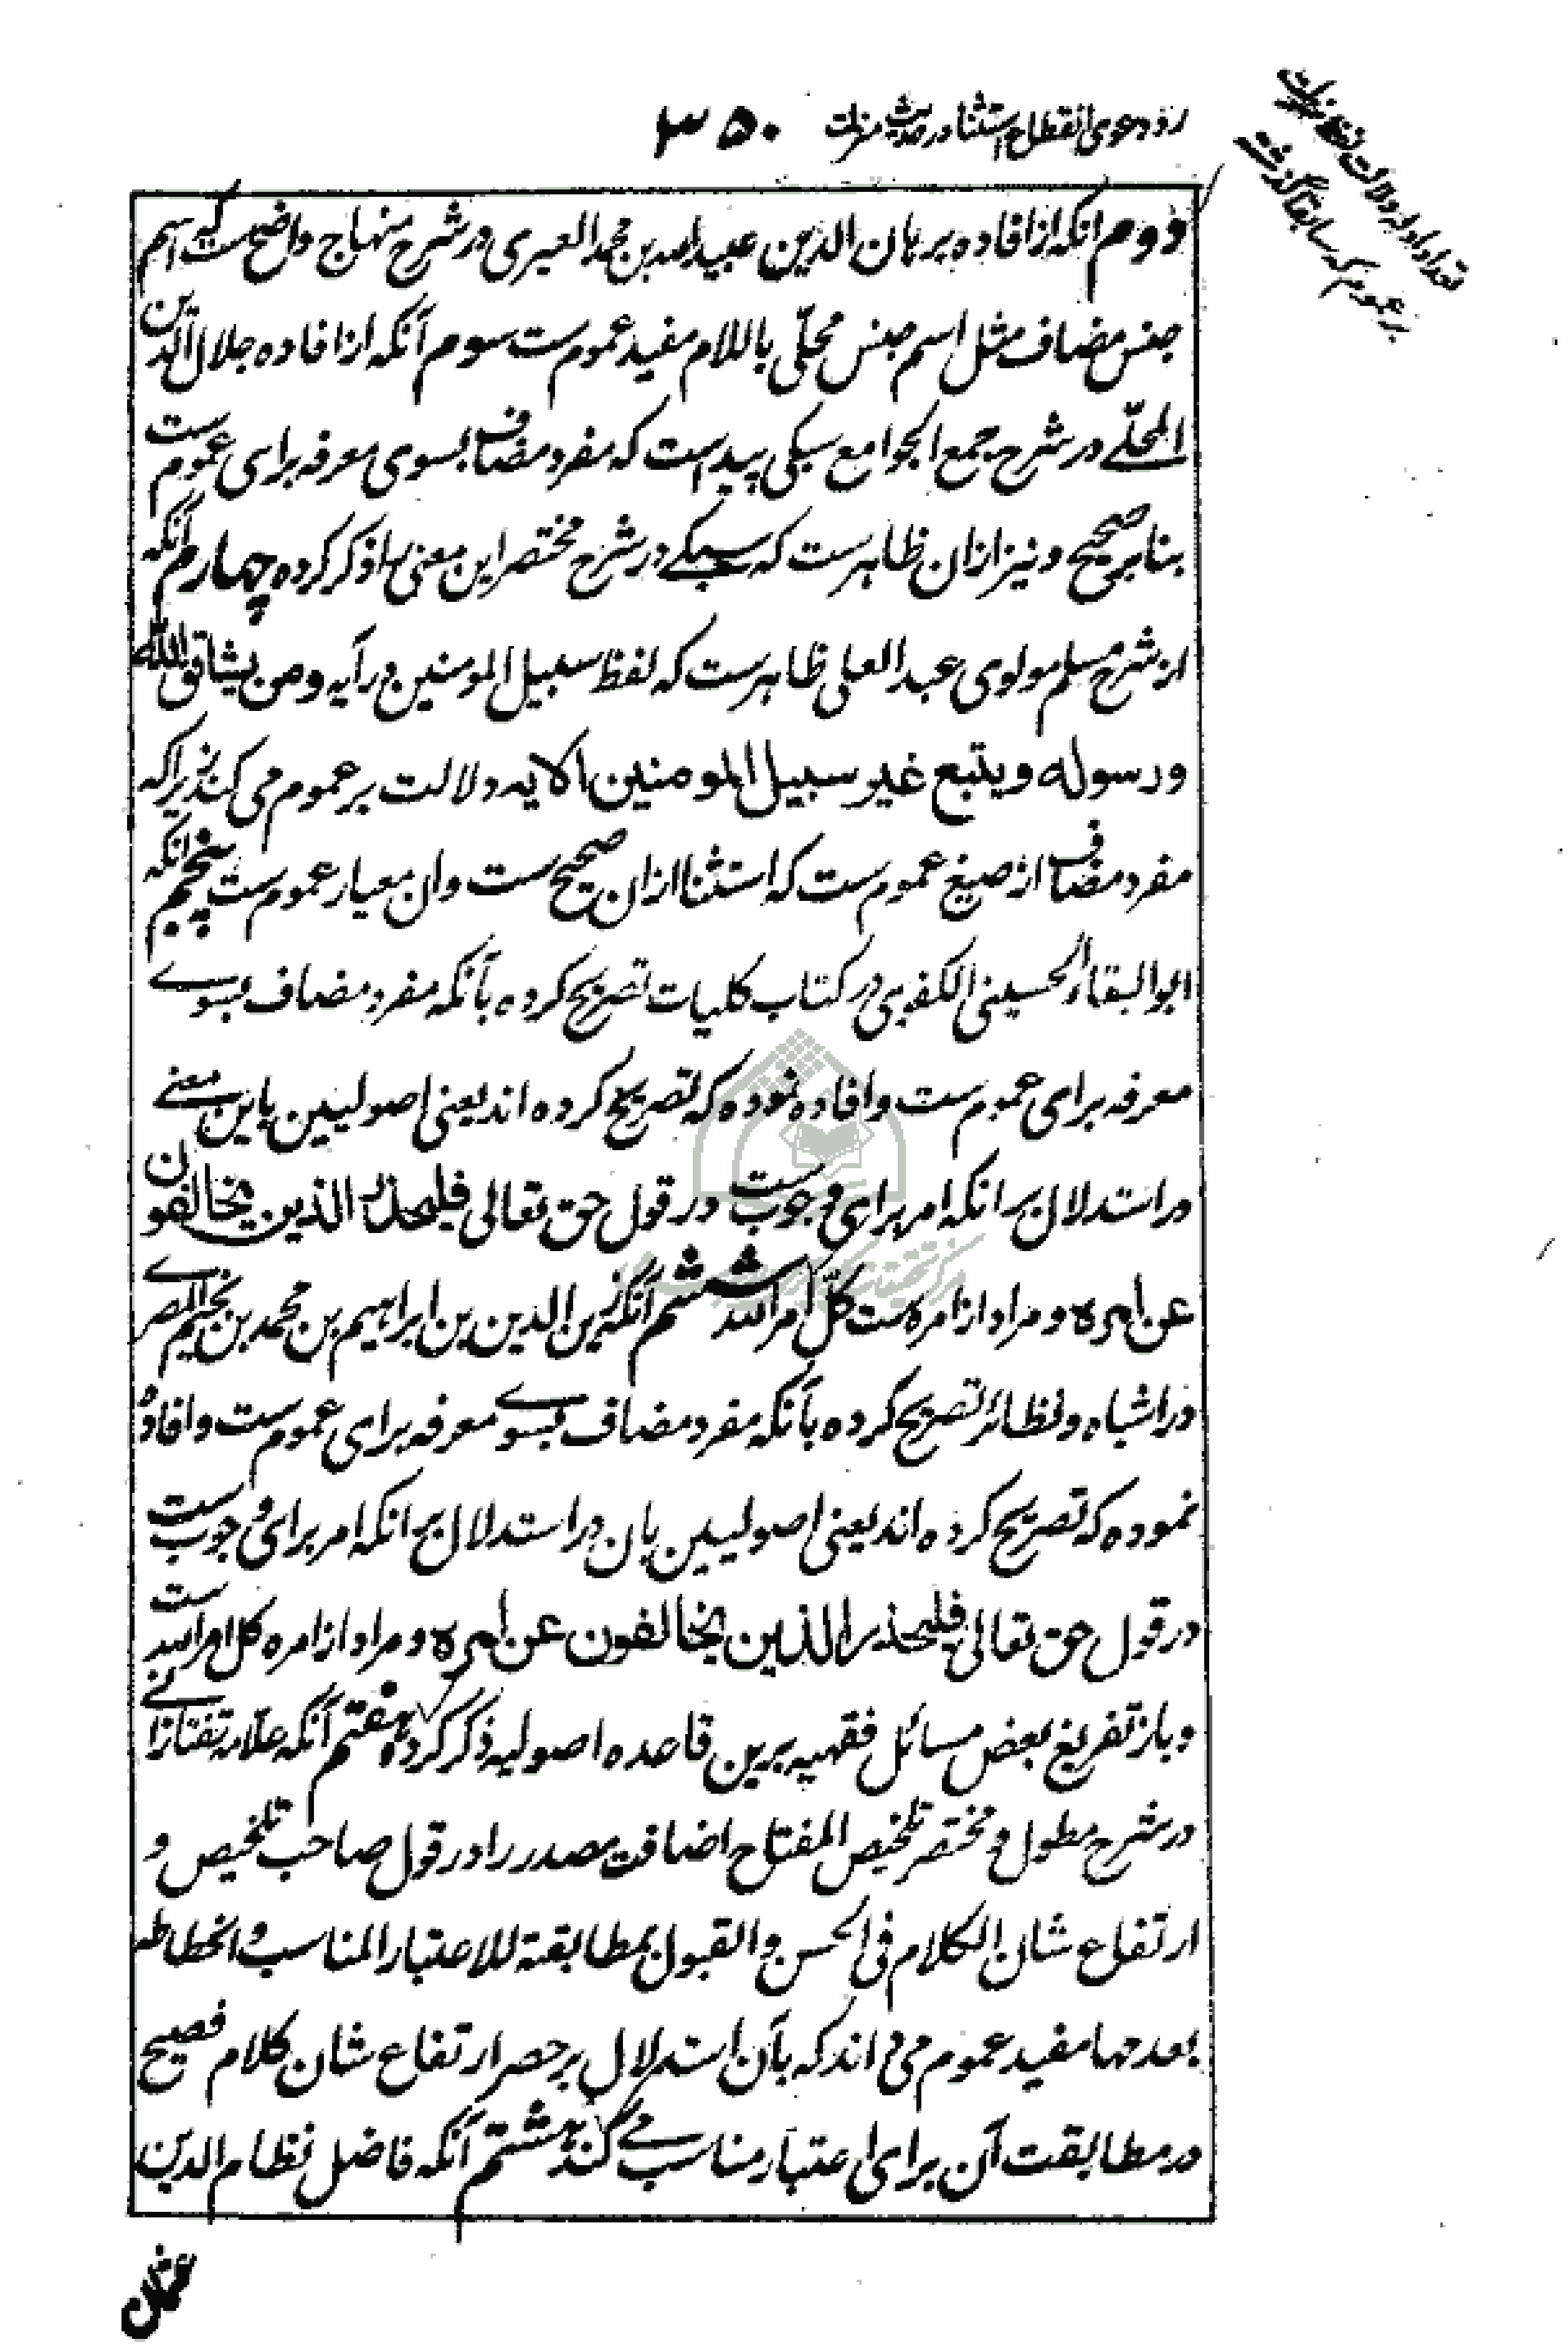 رد دعوی انقطاع استثنا در حدیث منزلت ۳۵۰
تعداد ادله دلالت لفظ منزلت
بر عموم که سابقا گذشت
دوم انکه از افاده برهان الدین عبیدالله بن محمد العبری در شرح منهاج واضحست که اسم
جنس مضاف مثل اسم جنس محلّی باللام مفید عموم ست سوم آنکه از افاده جلال الدین
المحلّے در شرح جمع الجوامع سبکی پیداست که مفرد مضاف بسوی معرفه برای عموم ست
بنابر صحیح و نیز ازان ظاهرست که سبکے در شرح مختصر این معنی را ذکر کرده چهارم آنکه
از شرح مسلم مولوی عبد العلی ظاهرست که لفظ سبیل المومنین در آیه ومن یشاقق الله
ورسوله ویتبع غیر سبیل المومنین الایه دلالت بر عموم می کند زیراکه
مفرد مضاف از صیغ عموم ست که استثنا ازان صحیح ست وان معیار عموم ست پنجم انکه
ابوالبقاء الحسینی الکفوی در کتاب کلیات تصریح کرده بآنکه مفرد مضاف بسوے
معرفه برای عموم ست وافاده نموده که تصریح کرده اند یعنی اصولیین باین معنے
در استدلال بر انکه امر برای وجوب ست در قول حق تعالی فلیحذر الذین یخالفون
عن امره و مراد از امره ست کلّ امر الله ششم آنکه زین الدین بن ابراهیم بن محمد بن نجیم المصرے
در اشباه ونظائر تصریح کرده بآنکه مفرد مضاف بسوے معرفه برای عموم ست وافاده
نموده که تصریح کرده اند یعنی اصولیین بان در استدلال بر انکه امر برای وجوب ست
در قول حق تعالی فلیحذر الذین یخالفون عن امره و مراد از امره کل امر الله ست
و باز تفریع بعض مسائل فقهیه برین قاعده اصولیه ذکر کرده هفتم آنکه علّامه تفتازانے
در شرح مطول و مختصر تلخیص المفتاح اضافت مصدر را در قول صاحب تلخیص و
ارتفاع شان الکلام فی الحسن والقبول بمطابقته للاعتبار المناسب وانحطاطه
بعدمها مفید عموم می داند که بآن استدلال بر حصر ارتفاع شان کلام فصیح
در مطابقت آن برای اعتبار مناسب مے کند هشتم آنکه فاضل نظام الدین
عثمان